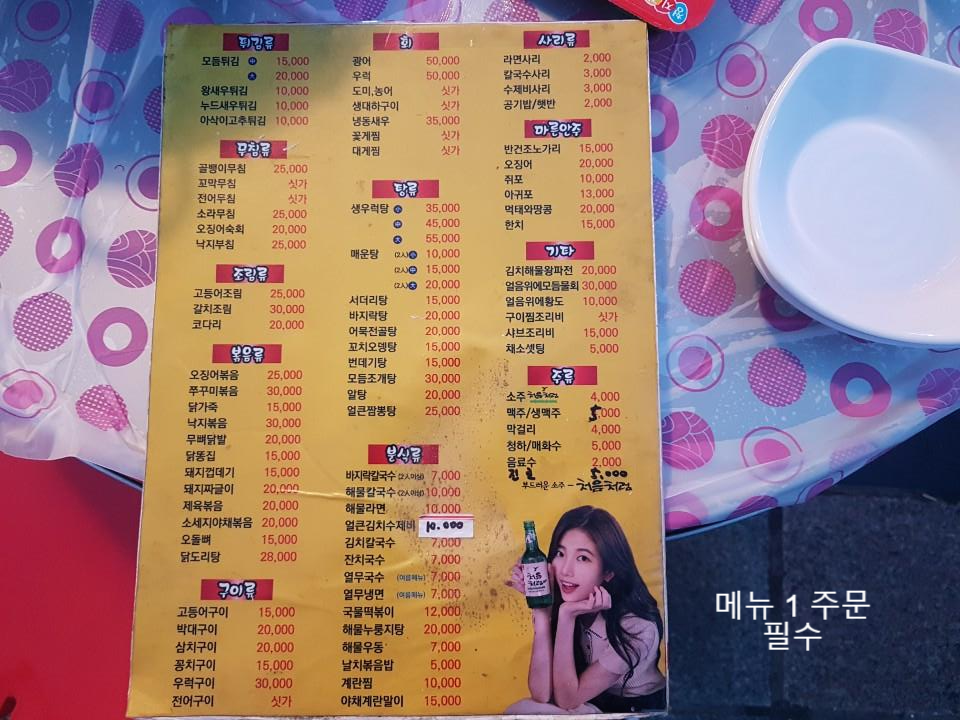 튀김류
모듬튀김 中 15,000
大 20,000
왕새우튀김 10,000
누드새우튀김 10,000
아삭이고추튀김 10,000
무침류
골뱅이무침 25,000
꼬막무침 싯가
전어무침 싯가
소라무침 25,000
오징어숙회 20,000
낙지부침 25,000
조림류
고등어조림 25,000
갈치조림 30,000
코다리 20,000
볶음류
오징어볶음 25,000
쭈꾸미볶음 30,000
닭가죽 15,000
낙지볶음 30,000
무뼈닭발 20,000
닭똥집 15,000
돼지껍데기 15,000
돼지짜글이 20,000
제육볶음 20,000
소세지야채볶음 20,000
오돌뼈 15,000
닭도리탕 28,000
구이류
고등어구이 15,000
박대구이 20,000
삼치구이 20,000
꽁치구이 15,000
우럭구이 30,000
전어구이 싯가
회
광어 50,000
우럭 50,000
도미,농어 싯가
생대하구이 싯가
냉동새우 35,000
꽃게찜 싯가
대게찜 싯가
탕류
생우럭탕 小 35,000
中 45,000
大 55,000
매운탕 (2人)小 10,000
(2人)中 15,000
(2人)大 20,000
서더리탕 15,000
바지락탕 20,000
어묵전골탕 20,000
꼬치오뎅탕 15,000
번데기탕 15,000
모듬조개탕 30,000
알탕 20,000
얼큰짬뽕탕 25,000
분식류
바지락칼국수 (2人이상) 7,000
해물칼국수 (2人이상) 10,000
해물라면 10,000
얼큰김치수제비 10.000
김치칼국수 7,000
잔치국수 7,000
열무국수 (여름메뉴) 7,000
열무냉면 (여름메뉴) 7,000
국물떡볶이 12,000
해물누룽지탕 20,000
해물우동 7,000
날치볶음밥 5,000
계란찜 10,000
야채계란말이 15,000
사리류
라면사리 2,000
칼국수사리 3,000
수제비사리 3,000
공기밥/햇반 2,000
마른안주
반건조노가리 15,000
오징어 20,000
쥐포 10,000
아귀포 13,000
먹태와땅콩 20,000
한치 15,000
기타
김치해물왕파전 20,000
얼음위에모듬물회 30,000
얼음위에황도 10,000
구이찜조리비 싯가
샤브조리비 15,000
채소셋팅 5,000
주류
소주 처음처럼 4,000
맥주/생맥주 5,000
막걸리 4,000
청하/매화수 5,000
음료수 2,000
진로 5,000
부드러운 소주 - 처음처럼
처음처럼
메뉴 1 주문
필수